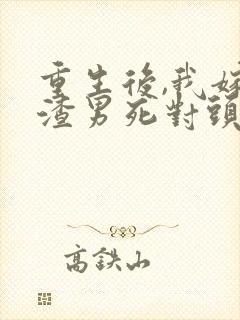 重生後,我嫁
渣男死對頭
高鉄山